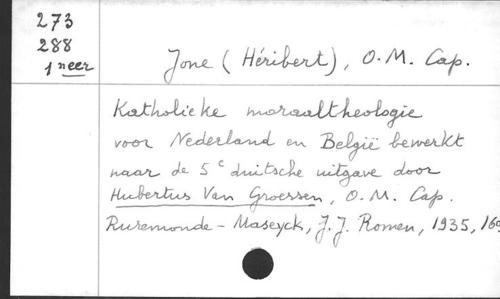 273
288
1 neer
Jone (Héribert), O.M. Cap.
Katholieke moraaltheologie
voor Nederland en België bewerkt
naar de 5e duitsche uitgave door
Hubertus Van Groessen, O.M. Cap.
Ruremonde - Maseyck, J.J. Romen, 1935, 16°